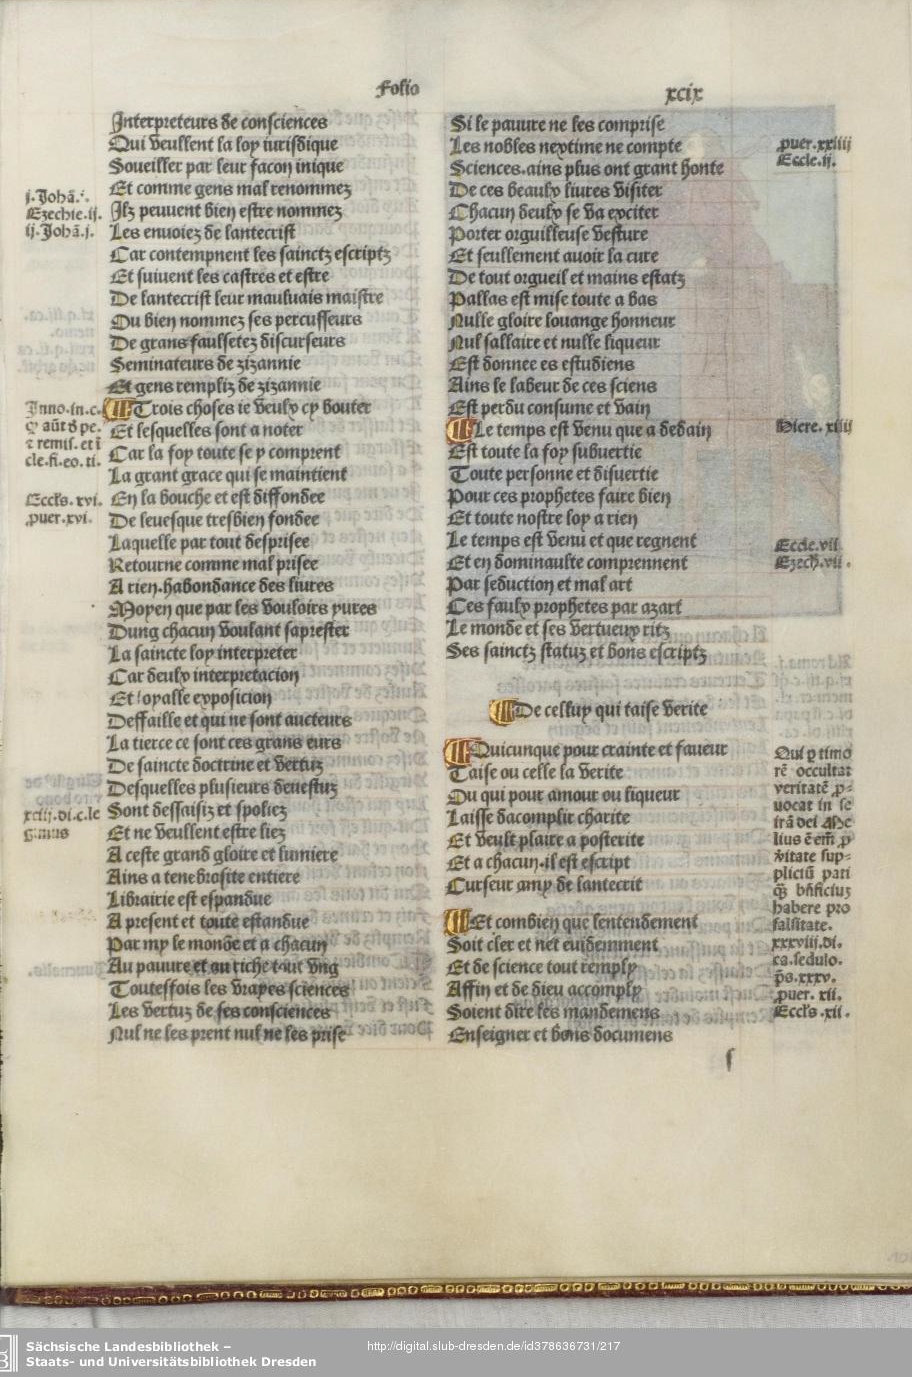 Folio
xcix
Interpreteurs de consciences
Qui veullent la loy iurisdique
Soueiller par leur facon inique
Et comme gens mal renommez
Ilz peuuent bien estre nommez
Les enuoiez de lantecrist
Car contempnent les sainctz escriptz
Et suiuent les castres et estre
De lantecrist leur mauluais maistre
Ou bien nommez ses percusseurs
De grans faulsetez discurseurs
Seminateurs de zizannie
Et gens rempliz de zizannie
Trois choses ie veulx cy bouter
Et lesquelles sont a noter
Car la foy toute se y comprent
La grant grace qui se maintient
En la bouche et est diffondee
De leuesque tresbien fondee
Laquelle par tout desprisee
Retourne comme mal prisee
A rien.habondance des liures
Moyen que par les vouloirs yures
Dung chacun voulant saprester
La saincte loy interpreter
Car deulx interpretacion
Et loyalle exposicion
Deffaille et qui ne sont aucteurs
La tierce ce sont ces grans eurs
De saincte doctrine et vertuz
Desquelles plusieurs denestuz
Sont dessaisiz et spoliez
Et ne veullent estre liez
A ceste grand gloire et lumiere
Ains a tenebrosite entiere
Librairie est espandue
A present et toute estandue
Par my le monde et a chacun
Au pauure et au riche tout vng
Toutesfois les vrayes sciences
Les vertuz de ses consciences
Nul ne les prent nul ne les prise
j.Johã.
Ezechie.ij.
ij.Johã.j.
Inno.in.c.
remis. et
cle.fi.eo.ti.
Eccls. xvi.
puer.xvi.
xciij.di.c.le
gimus
Si le pauure ne les comprise
Les nobles nextime ne compte
Sciences.ains plus ont grant honte
De ces beaulx liures visiter
Chacun deulx se va exciter
Porter orguilleuse vesture
Et seullement auoir la cure
De tout orgueil et mains estatz
Pallas est mise toute a bas
Nulle gloire louange honneur
Nul sallaire et nulle liqueur
Est donnee es estudiens
Ains le labeur de ces sciens
Est perdu consume et vain
Le temps est venu que a dedain
Est toute la foy subuertie
Toute personne et disuertie
Pour ces prophetes faire bien
Et toute nostre loy a rien
Le temps est venu et que regnent
Et en dominaulte comprennent
Par seduction et mal art
Ces faulx prophetes par azart
Le monde et ses vertueux ritz
Ses sainctz statuz et bons escriptz
De celluy qui taise verite
Quicunque pour crainte et faueur
Taise ou celle la verite
Ou qui pour amour ou liqueur
Laisse dacomplir charite
Et veult plaire a posterite
Et a chacun.il est escript
Curseur amy de lantecrit
Et combien que lentendement
Soit cler et net euidemment
Et de science tout remply
Affin et de dieu accomply
Soient dire les mandemens
Enseigner et bons documens
puer.xxiiij
Eccle.ij.
Hiere. xiiij
Eccle.vii
Ezech.vii.
Qui ꝑ timo
rẽ occultat
veritatẽ ꝓ-
uocat in se
irã dei Me
lius ẽ em̃ ꝓ
vitate sup-
pliciũ pati
qȝ bñficiuz
habere pro
falsitate.
xxxviii.di.
ca.sedulo.
ps.xxxv.
puer. xii.
Eccls.xii.
f
Sächsische Landesbibliothek –
Staats- und Universitätsbibliothek Dresden
http://digital.slub-dresden.de/id378636731/217